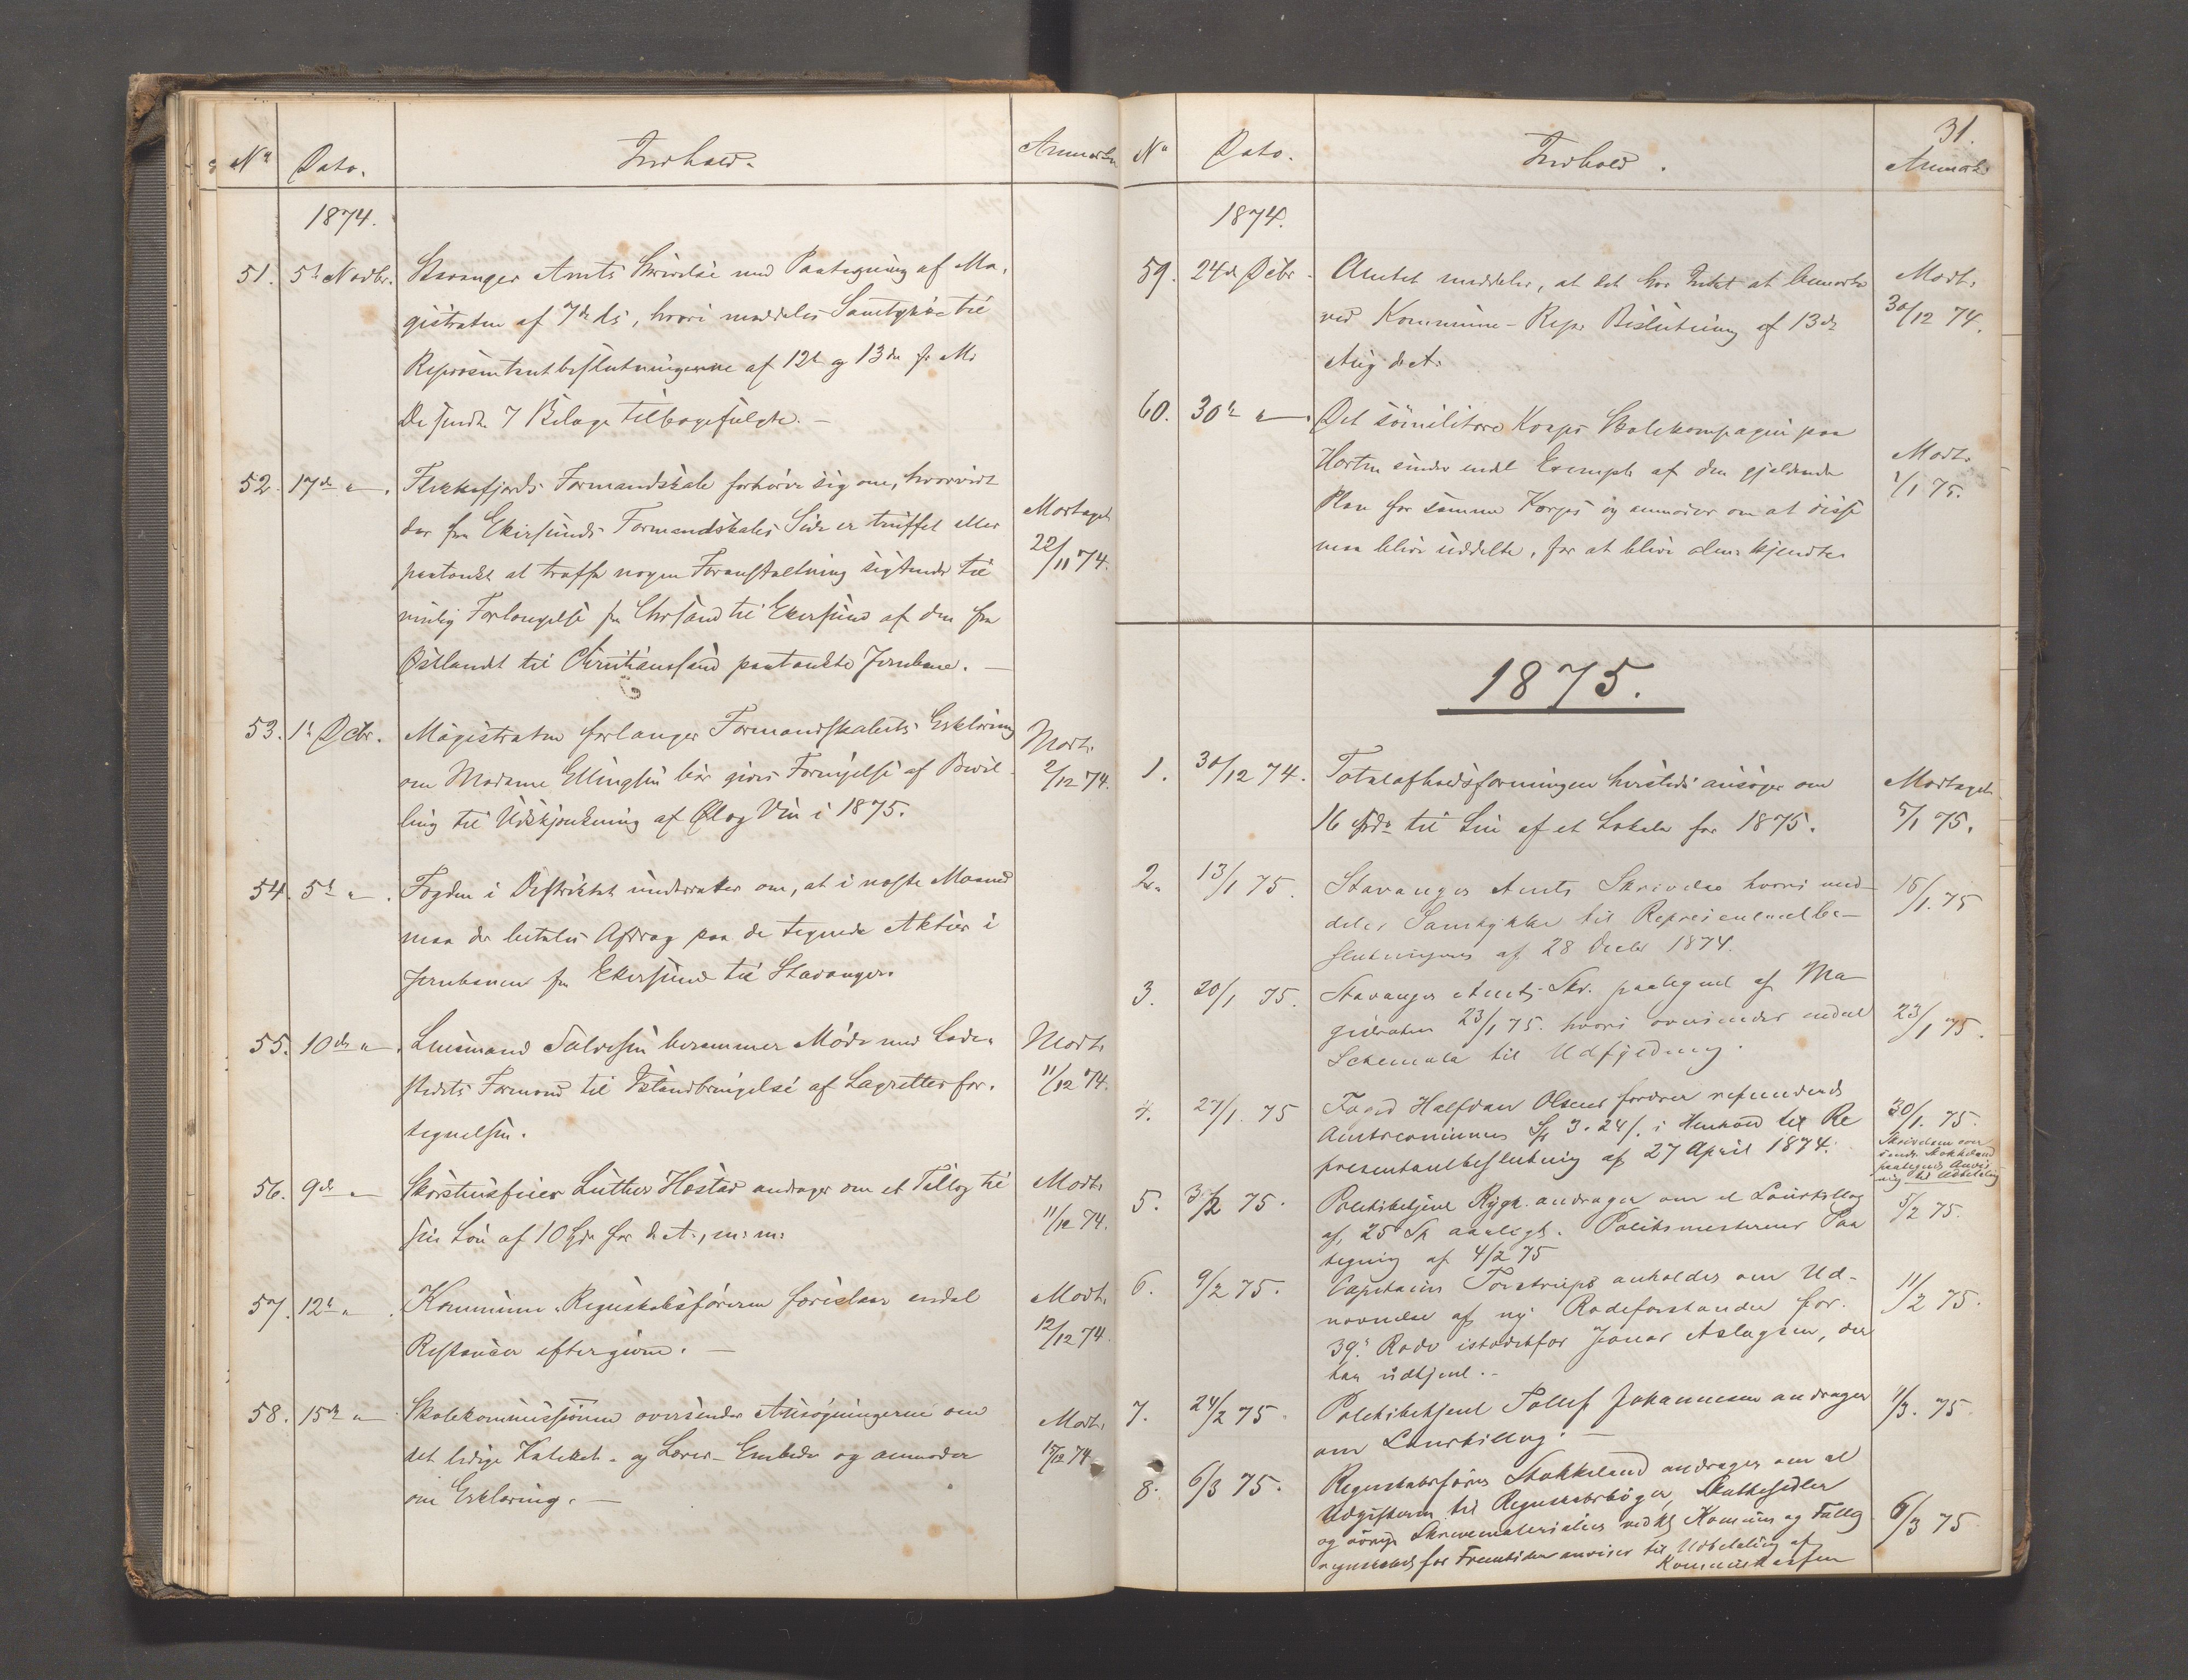 No Dato. Indhold. Anmærkn
1874.
51. 5te Novbr. Stavanger Amts Skrivelse med Paategning af Ma-
gistraten af 7de ds, hvori meddeles Samtykke til
Repræsentantbeslutningerne af 12te og 13de f. M.
De sendte 7 Bilage tilbagefulgte. —
52. 17de " . Flekkefjords Formandskab forhører sig om, hvorvidt
der fra Ekersunds Formandskabs Side er truffet eller
paatænkt at træffe nogen Foranstaltning sigtende til
mulig Forlængelse fra Chrsand til Ekersund af den fra
Østlandet til Christianssand paatænkte Jernbane. —
Modtaget
22/11 74.
53. 1te Dcbr. Magistraten forlanger Formandskabets Erklæring
om Madame Ellingsen bør gives Fornyelse af Bevil-
ling til Udskjænkning af Øl og Vin i 1875.
Modt.
2/12 74.
54. 5te " . Fogden i Distriktet underretter om, at i næste Maaned
maa der betales Afdrag paa de tegnede Aktier i
Jernbanen fra Ekersund til Stavanger.
55. 10de " . Lensmand Salvesen berammer Møde med Lade-
stedets Formand til Istandbringelse af Lagrettesfor-
tegnelsen.
Modt.
11/12 74.
56. 9de " Skorstensfeier Luther Hæstad andrager om et Tillæg til
sin Løn af 10 Spd. for d. A., m. m.
Modt.
11/12 74.
57. 12te " . Kommune-Regnskabsføreren foreslaar endel
Restancer eftergivne. —
Modt.
12/12 74.
58. 15de " Skolekommissionen oversender Ansøgningerne om
det ledige Kateket- og Lærer-Embede og anmoder
om Erklæring. —
Modt.
15/12 74
31.
No Dato. Indhold. Anmærk.
1874.
59. 24de Dcbr. Amtet meddeler, at det har Intet at bemærke
ved Kommune-Repr. Beslutning af 13de
Aug d. A.
Modt.
30/12 74.
60. 30te " . Det sømilitære Korps Skolekompagni paa
Horten sender endel Exempl. af den gjeldende
Plan for samme Korps og anmoder om at disse
maa blive uddelte, for at blive alm. kjendte.
Modt.
1/1 75.
1875.
1. 30/12 74. Totalafholdsforeningen hersteds ansøger om
16 Spd. til Leie af et Lokale for 1875.
Modtaget
5/1 75.
2. 13/1 75. Stavanger Amts Skrivelse hvori med-
deles Samtykke til Repræsentantbe-
slutningerne af 28 Decbr 1874.
15/1. 75
3. 20/1 75. Stavanger Amts Skr. paategnet af Ma-
gistraten 23/1 75. hvori oversendes endel
Schemata til Udfyldning.
23/1 75.
4. 27/1. 75 Foged Halfdan Olsens fordrer refunderet
Amtscommunen Sp 3. 24 ß. i Henhold til Re
presentantbeslutning af 27 April 1874.
30/1. 75.
Skrivelsen over
sendt Stokkeland
paategnet Anvis
ning til Udbetaling
5. 3/2 75. Politibetjent Rygh. andrager om et Lønstillæg
af 25 Sp aarligt. Politimesterens Paa
tegning af 4/2 75
5/2 75.
6. 9/2 75. Capitain Torstrups anholder om Ud-
nævnelse af ny Rodeforstander for
39te Rode istedetfor Jonas Aslagsen, der
har udtjent. -
11/2 75.
7. 24/2 75. Politibetjent Tollef Johannesen andrager
om Lønstillæg. —
1/3. 75.
8. 6/3 75. Regnskabsfører Stokkeland andrager om at
Udgifterne til Regnskabsbøger, Skattesedler
og øvrige Skrivematerialier vedk. Komune og Fattig
regnskabet for Fremtiden anvises til Udbetaling af
Kommunekassen
6/3 75